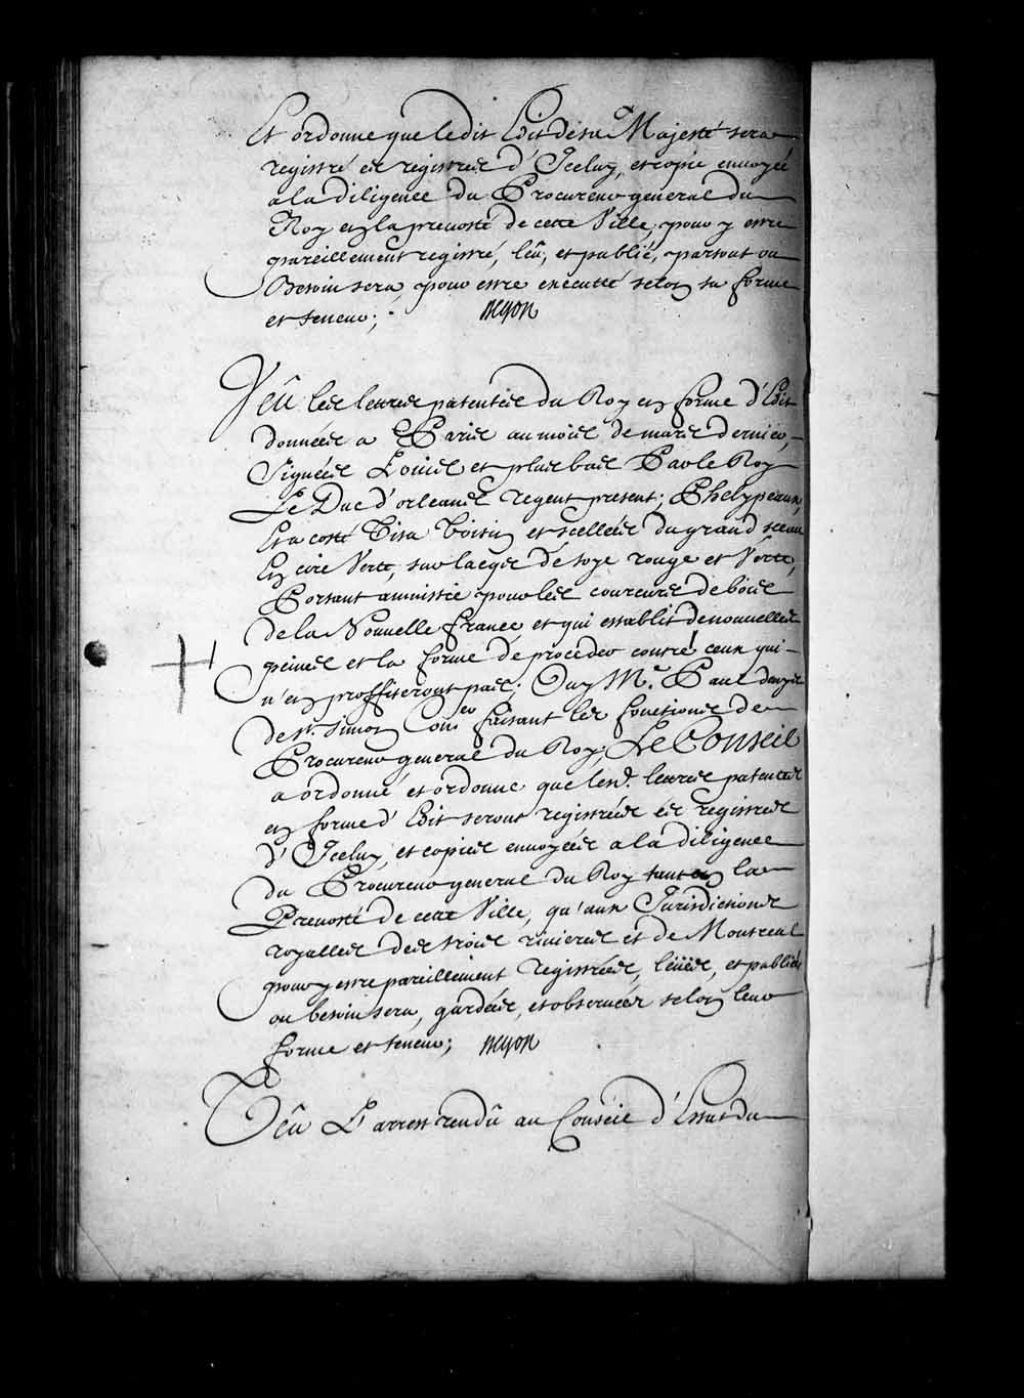 Et ordonne que ledit Edit de sa Majesté sera
registré es registres d'Iceluy, et copie envoyée
a la diligence du Procureur general du
Roy en la prevosté de cette Ville, pour y estre
pareillement registré, leû, et publié, partout ou
Besoin sera, pour estre executté selon sa forme
et teneur; Begon
Veû les lettres patentes du Roy en forme d'Edit
données a Paris au mois de mars dernier,
Signées Louis et plus bas Par le Roy
Le Duc d'orleans Regent present; Phelypeaux,
Et a costé Visa Voisin et scellées du grand sceau
En cire Verte, sur lacqs de soye rouge et Verte,
Portant amnistie pour les coureurs de bois
de la Nouvelle france, et qui establit de nouvelles
peines et la forme de proceder contre ceux qui
n'en proffiteront pas; Ouy Mr. Paul dupuy
de st. simon Conser faisant les fonctions de
Procureur general du Roy, Le Conseil
a ordonné et ordonne que lesd. lettres patentes
en forme d'Edit seront registrées es registres
d'Iceluy, et copies envoyées a la diligence
du Procureur general du Roy tant en la
Prevosté de cette Ville, qu'aux Jurisdictions
royalles des trois rivieres et de Montreal
pour y estre pareillement Registrées, leües, et publiées
ou besoin sera, gardées, et observées selon leur
forme et teneur; Begon
Veû L'arrest rendû au Conseil d'Estat du